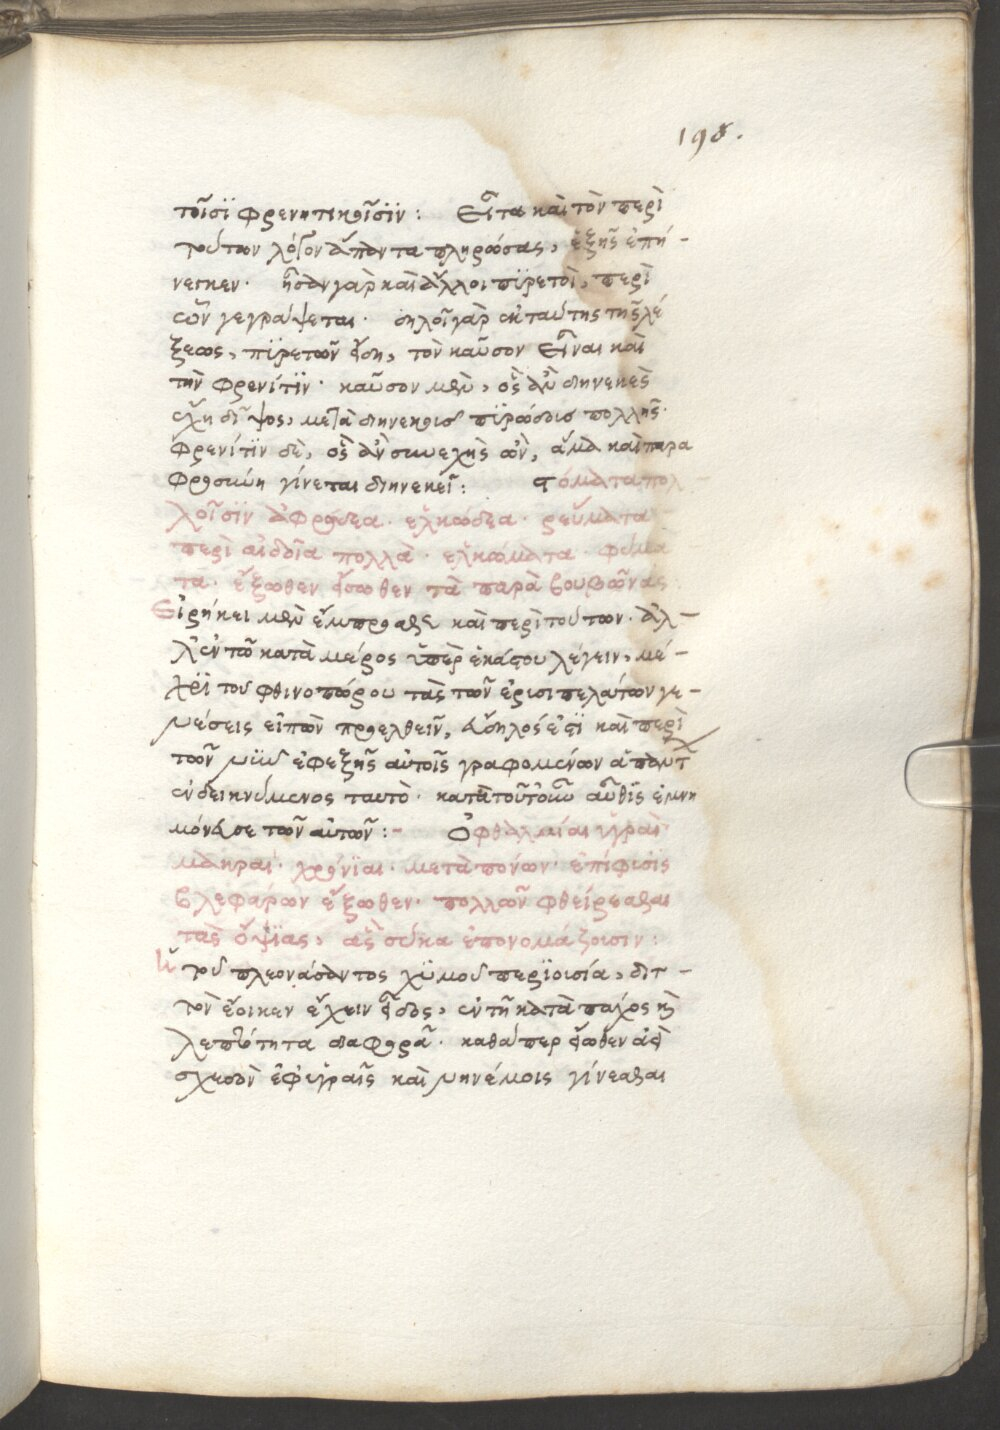 198.
τοῖσϊ φρενητικοῖσϊν : Εἶτα καὶ τὸν περὶ
τούτων λόγον ἅπαντα πληρώσας, ἑξῆς ἐπή-
νεγκεν· ἦσαν γὰρ καὶ ἄλλοι πϋρετοὶ, περὶ
ὧν γεγράψεται· δηλοῖ γὰρ ἐκ ταύτης τῆς λέ
ξεως, πϋρετῶν εἴδη, τὸν καῦσον εἶναι καὶ
τὴν φρενίτϊν· καῦσον μὲν, ὃς ἂν διηνεκὲς
ἔχη δίψος, μετὰ διηνεκοῦς πϋρώσεως πολλῆς·
φρενίτϊν δὲ, ὃς ἂν συνεχὴς ὢν, ἅμα καὶ παρα
φροσύνη γίνεται διηνεκεῖ : στόματα πολ-
λοῖσϊν ἀφρώδεα· ἑλκώδεα· ῥεύματα
περὶ αἰδοῖα πολλὰ· ἑλκώματα· φύμα
τα· ἔξωθεν ἔσωθεν τὰ παρὰ βουβῶνας
Εἰρήκει μὲν ἔμπροσθεν καὶ περὶ τούτων· ἀλ-
λ' ἐν τῶ κατὰ μέρος ὑπὲρ ἑκάστου λέγειν, μέ-
χρϊ τοῦ φθινοπώρου τὰς τῶν ἐρυσιπελάτων γε-
νέσεις εἰπὼν προελθεῖν, ἄδηλός ἐστϊ καὶ περὶ
τῶν νῦν ἐφεξῆς αὐτοῖς γραφομένων ἁπάντ
ἐνδεικνύμενος ταυτὸ· κατὰ τοῦτο αὖθις ἐμνη
μόνευσε τῶν αὐτῶν :- Ὀφθαλμίαι ὑγραὶ
μακραὶ· χρόνϊαι· μετὰ πόνων· ἐπιφύσϊς
βλεφάρων ἔξωθεν· πολλῶν φθείρεσθαι
τὰς ὄψϊας, ἃς σῦκα ἐπονομάζουσιν :
τοῦ πλεονάσαντος χϋμοῦ περϊουσία, διτ-
τὸν ἔοικεν ἔχειν εἶδος, ἐν τῆ κατὰ πάχος καὶ
λεπτότητα διαφορᾶ· καθάπερ ἔωθεν ἀεὶ
σχεδὸν ἐφ' ὑγραῖς καὶ νηνέμοις γίνεσθαι